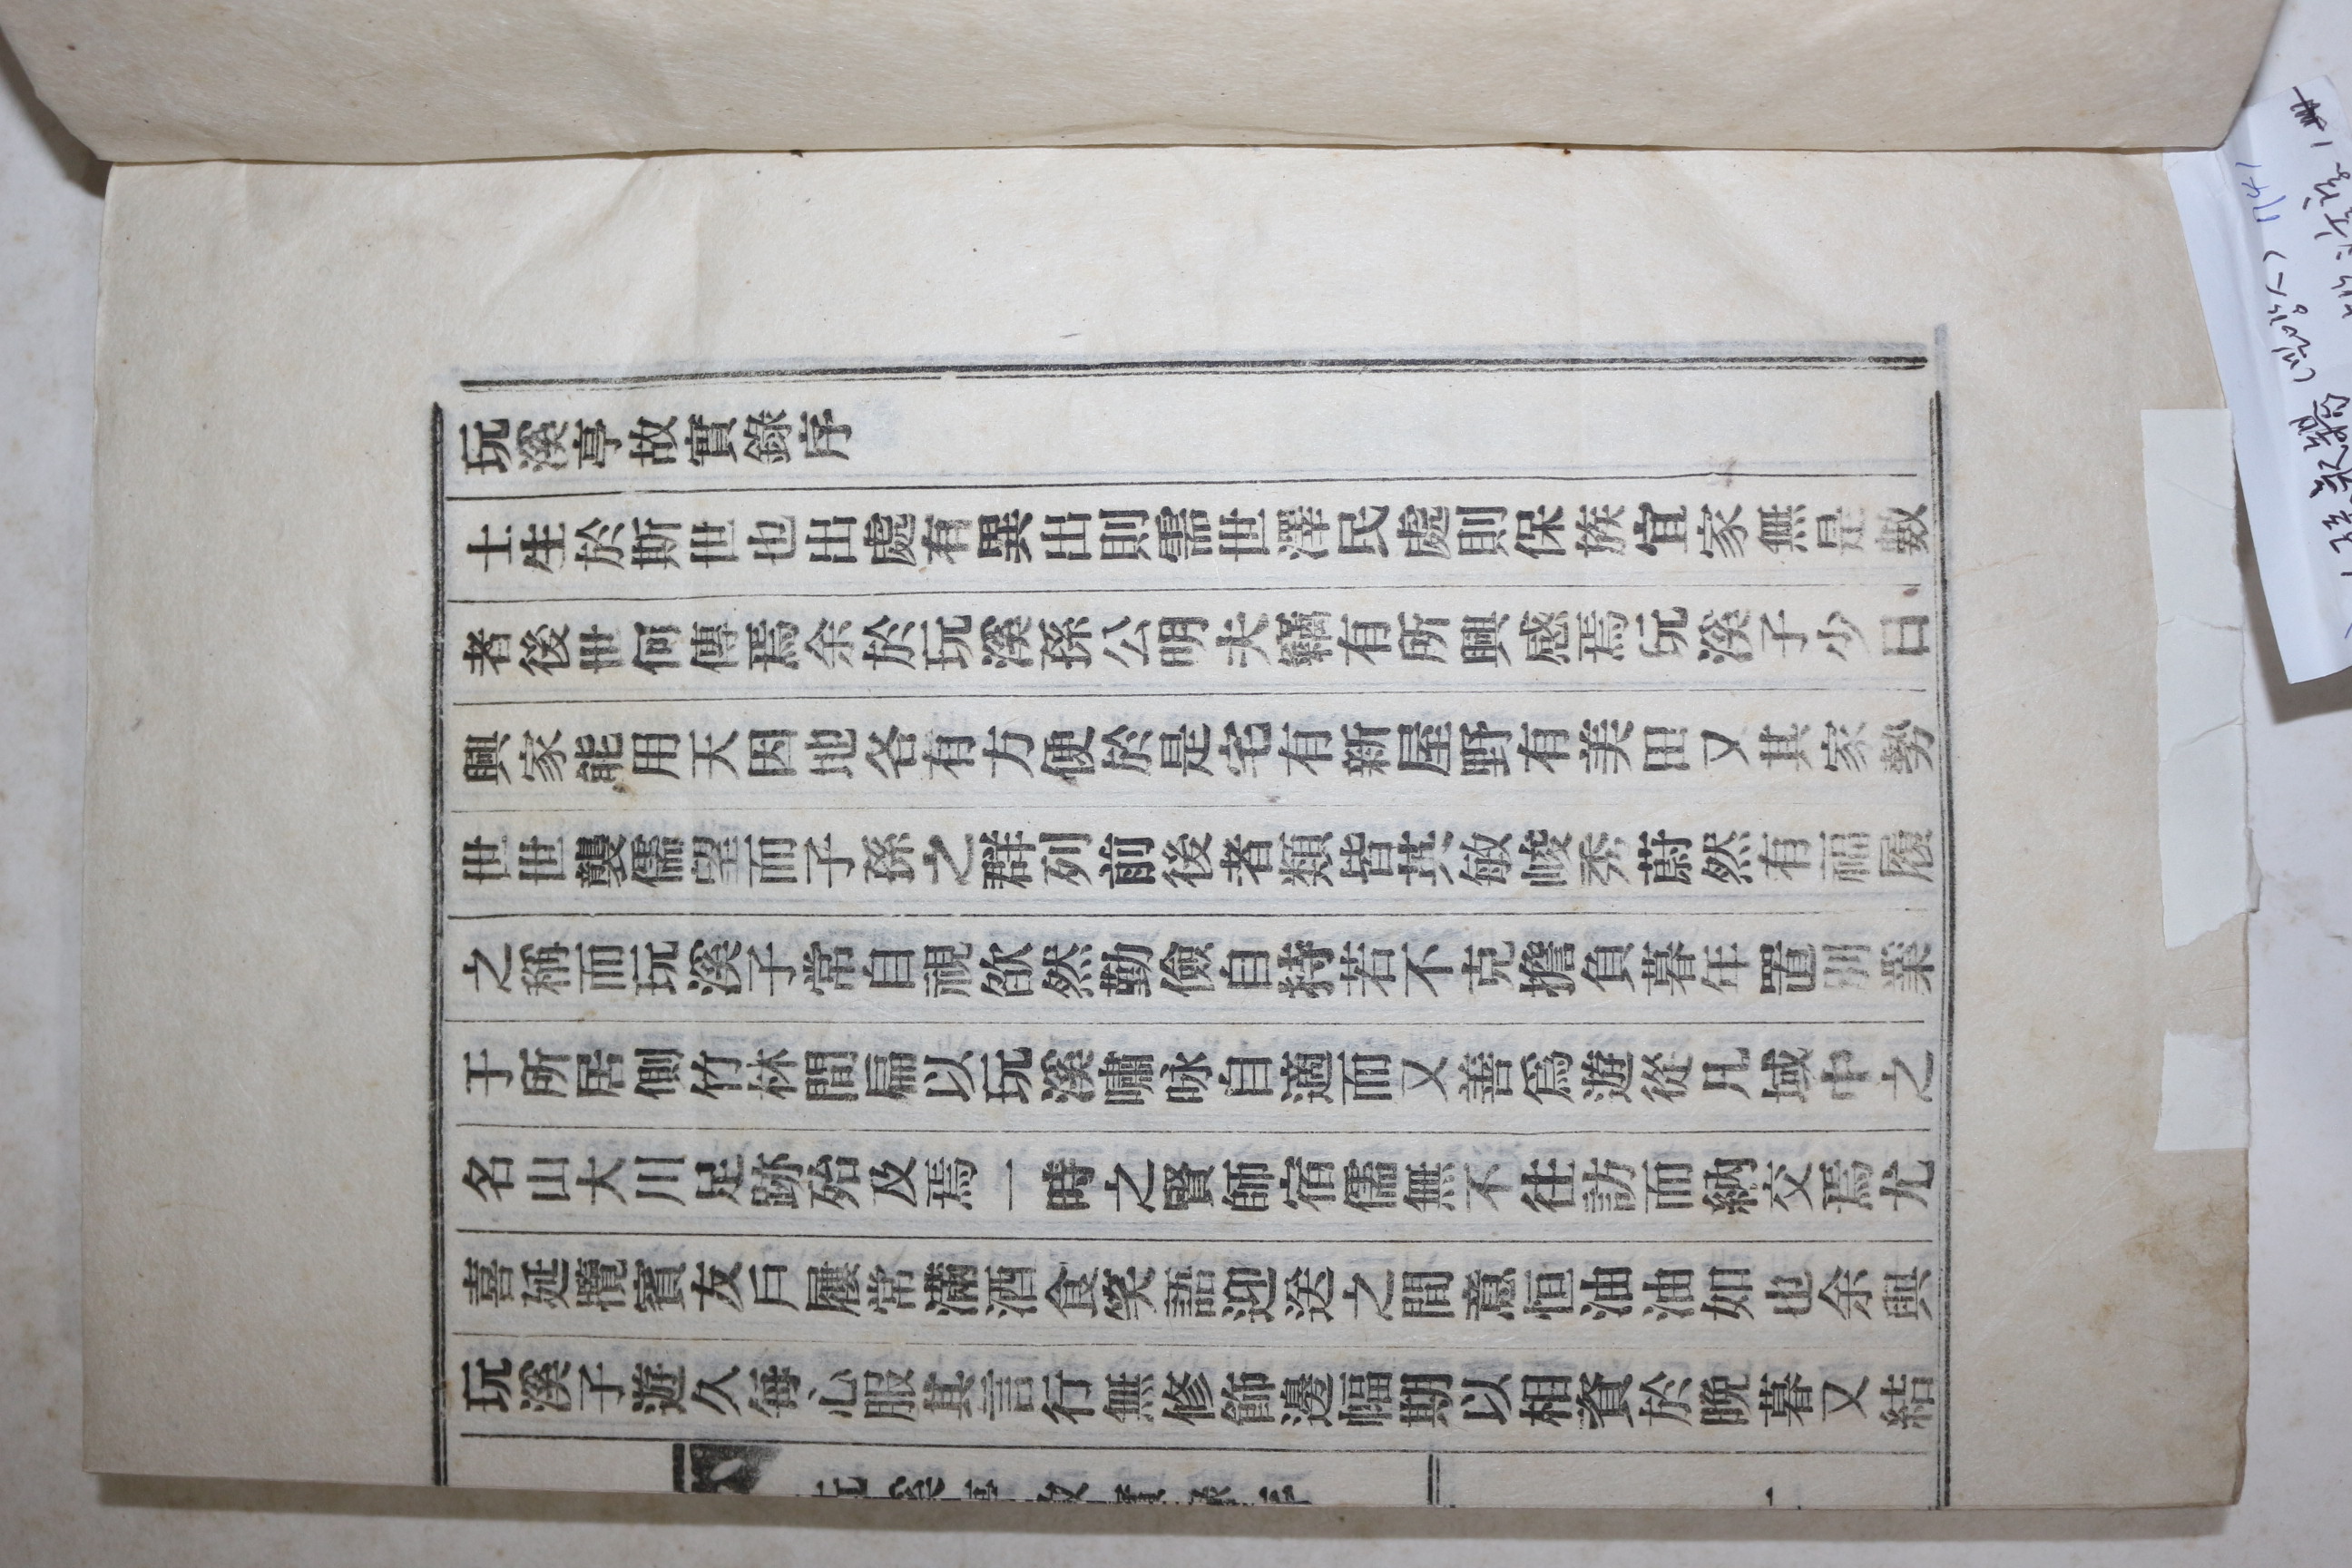 玩溪亭故實錄序
士生於斯世也出處有異出則需世澤民處則保族宜家無是數
者後世何傳焉余於玩溪孫公明夫竊有所興感焉玩溪子少日
興家能用天因地各有方便於是宅有新屋野有美田又其家勢
世世襲儒望而子孫之群列前後者類皆英敏峻秀蔚然有福履
之稱而玩溪子常自視欿然勤儉自持若不克擔負暮年置別業
于所居側竹林間扁以玩溪嘯咏自適而又善爲遊從凡域中之
名山大川足跡殆及焉一時之賢師宿儒無不往訪而納交焉尤
喜延攬賓友戶屨常滿酒食笑語迎送之間意恒油油如也余與
玩溪子遊久每心服其言行無修飾邊幅期以相資於晩暮又結
玩溪亭故實錄序